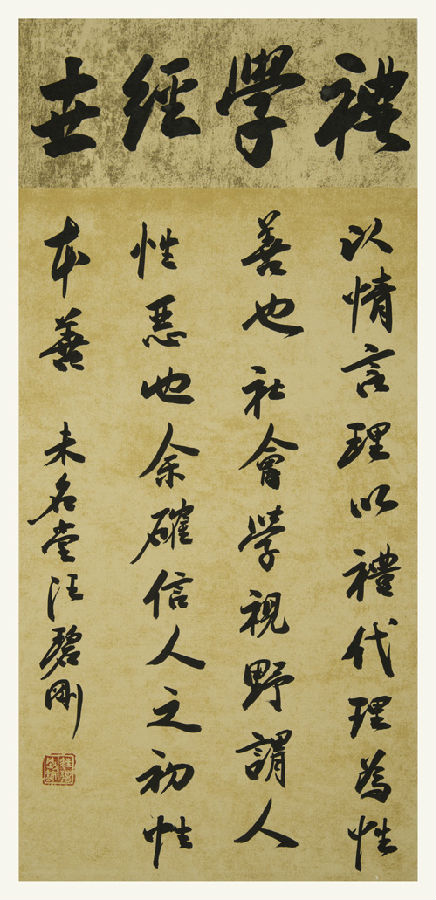 禮學經世
以情言理以禮代理為性
善也社會學視野謂人
性惡也余確信人之初性
本善 未名堂汪碧剛